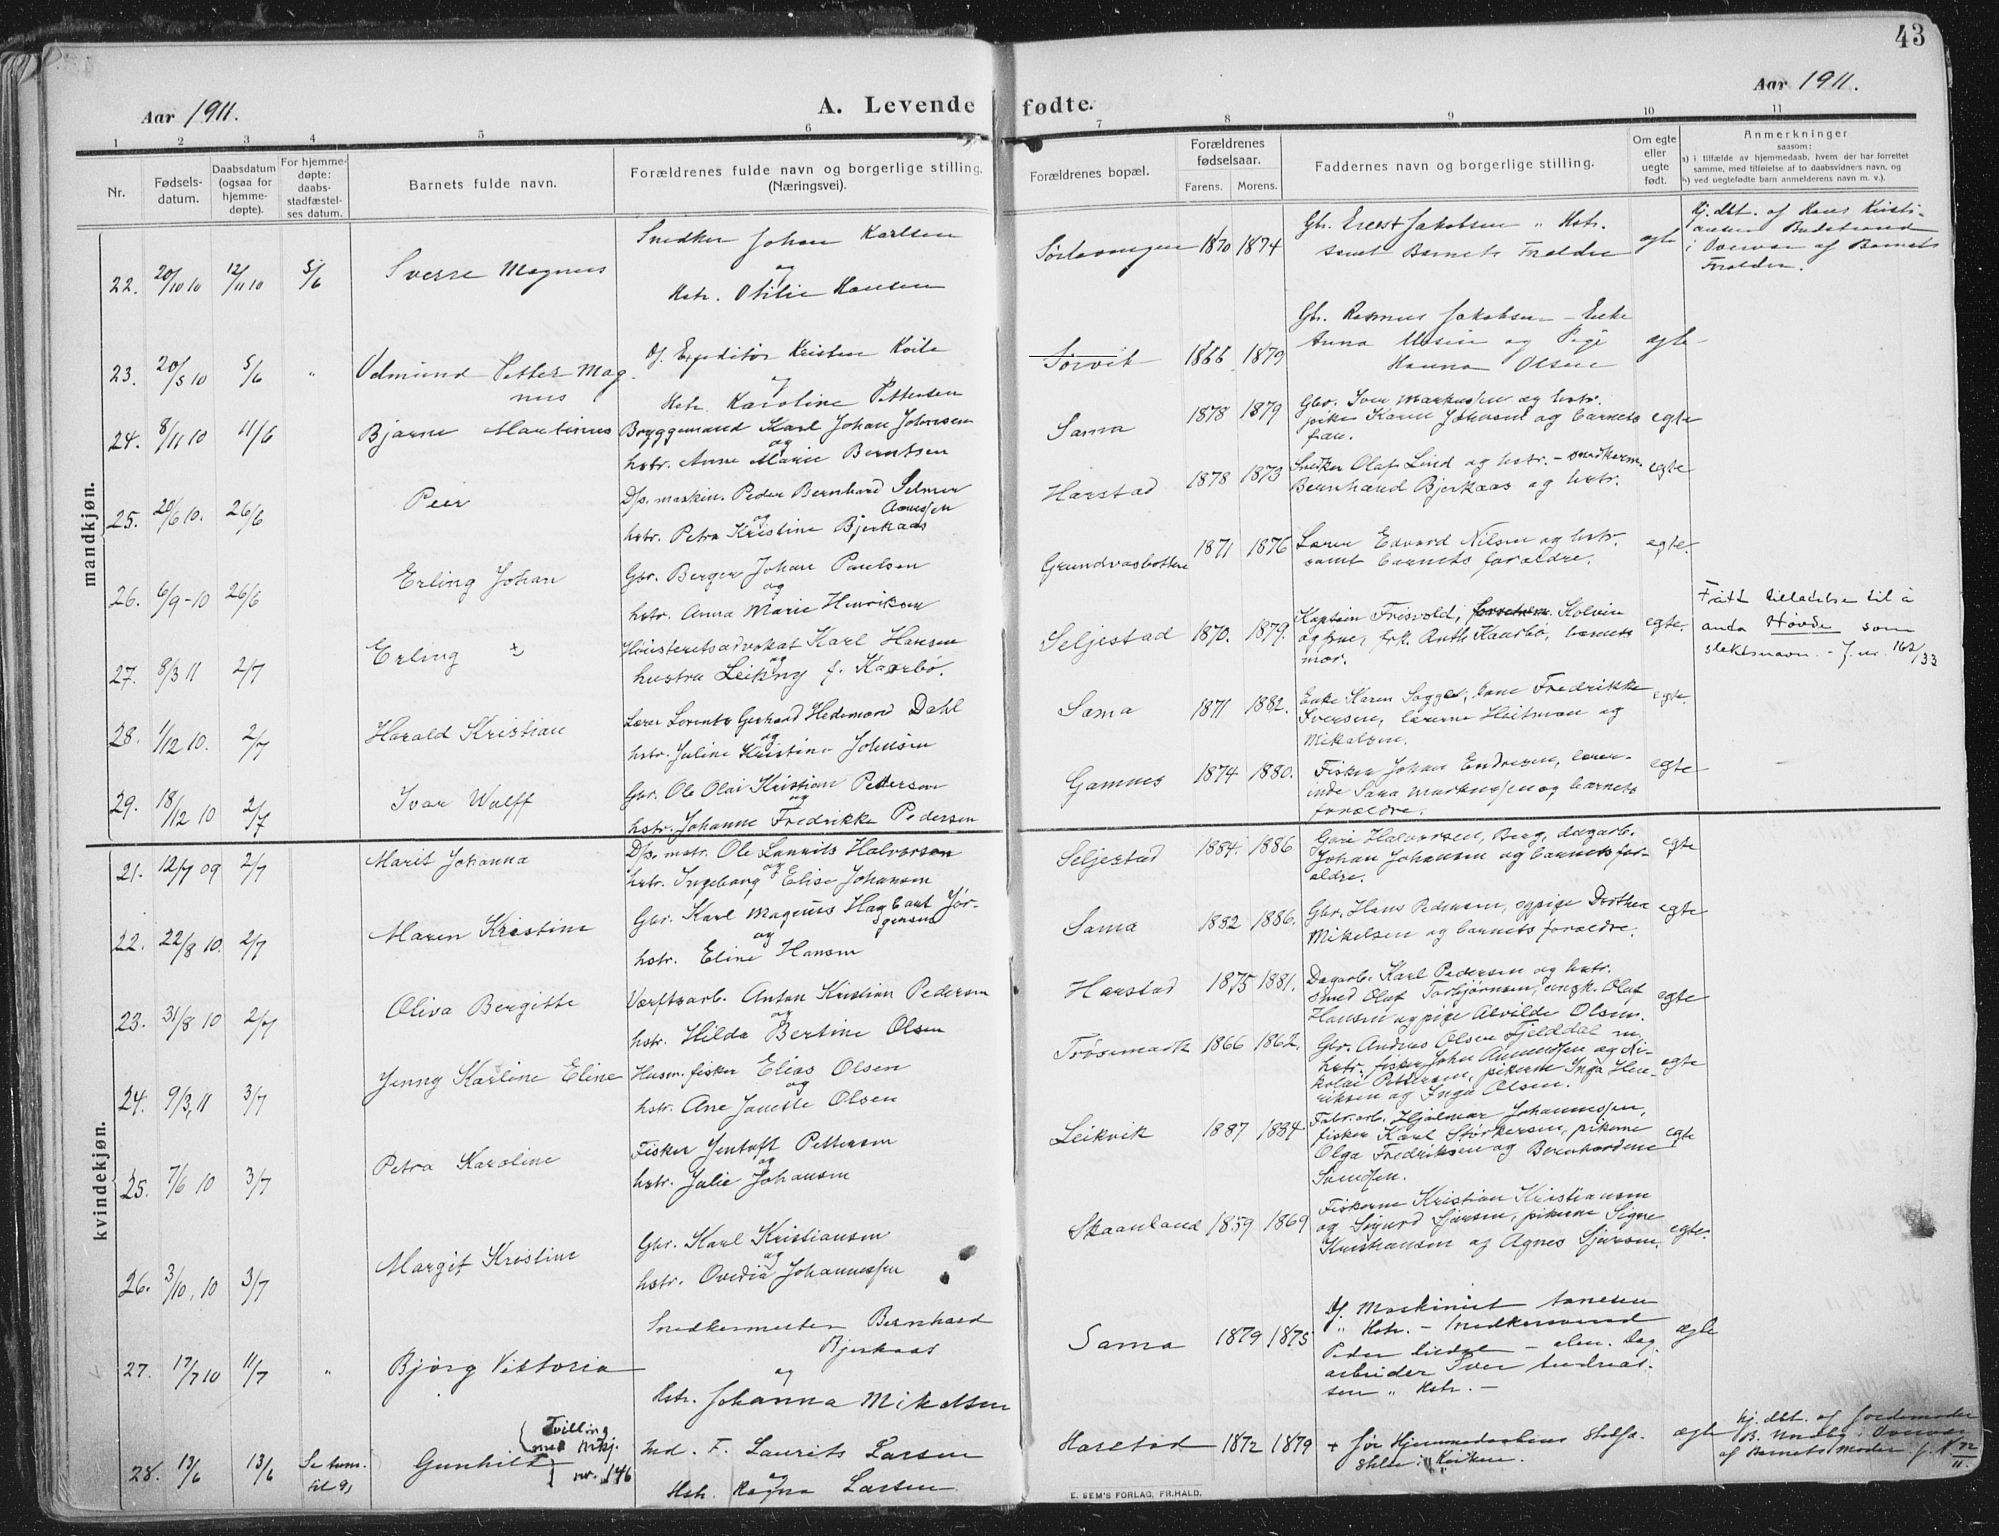 43
Aar 1911.
A. Levende fødte.
Aar 1911.
1 2 3 4 5 6 7 8 9 10 11
Nr.
Fødsels-
datum.
Daabsdatum
(ogsaa for
hjemme-
døpte).
For hjemme-
døpte:
daabs-
stadfæstel-
ses datum.
Barnets fulde navn.
Forældrenes fulde navn og borgerlige stilling.
(Næringsvei).
Forældrenes bopæl.
Forældrenes
fødselsaar.
Farens. Morens.
Faddernes navn og borgerlige stilling.
Om egte
eller
uegte
født.
Anmerkninger
saasom:
a) i tilfælde av hjemmedaab, hvem der har forrettet
samme, med tilføielse af to daabsvidners navn, og
b) ved uegtefødte barn anmelderens navn m. v.)
mandkjøn.
22. 20/10 10 12/11 10 5/6 Sverre Magnus
Snedker Johan Karlsen
og
Hstr. Otilie Hansen
Sørlavangen 1870 1874
Gbr. Jakobsen " Hstr.
samt Barnets Forældre
egte
Hj. dbt. af Hans Kristi-
ansen
i Overvær af Barnets
Forældre.
23. 20/5 10 5/6 " Edmund Petter Mag
nus
Df. Expeditør Kristen Kvile
og
Hstr. Karoline Pettersen
Sørvik 1866 1879
Gbr. Rasmus Jakobsen - Enke
Anna og Pige
Hanna Olsen
egte
24. 8/11 10 11/6 Bjarne Martinus
Bryggemand Karl Johan Johnsen
og
hstr. Anne Marie Berntsen
Sama 1878 1879
Gbr. Iver Markussen og hstr.
pike Karen Johnsen og barnets
far.
egte
25. 20/6 10. 26/6 Peer
D/s. maskin. Peder Bernhard Selmer
Aanessen
og
hstr. Petra Kristine Bjerkaas
Harstad 1878 1873
Snedker Olaf Lind og hstr. - snedkerm.
Bernhard Bjerkaas og hstr.
egte
26. 6/9-10 26/6 Erling Johan
Gbr. Berger Johan Paulsen
og
hstr. Anna Marie Henriksen
Grundvasbotten 1871 1876
Lærer Edvard Nilsen og hstr.
samt barnets forældre.
egte.
27. 8/3 11 2/7 Erling
Høiesteretsadvokat Karl Hansen
og
hustru Leikny f. Kaarbø.
Seljestad 1870. 1879.
Kaptein Frisvold, Kolvin
og frue, frk. Ruth Kaarbø, barnets
mor.
egte.
Fått tilladelse til å
anta Høvde som
slektsnavn. - J. nr. 162/33
28. 1/12 10. 2/7 Harald Kristian
Lærer Lorents Gerhard Hedemand Dahl
og
hstr. Juline Kristine Johnsen
Sama 1871 1882.
Enke Karen Fredrikke
Iversen, lærerne Heitman og
Mikalsen.
egte.
29. 18/12 10 2/7 Ivar Wulff
Gbr. Ole Olai Kristian Pedersen
og
hstr. Johanne Fredrikke Pedersen
Gamnes 1874 1880.
Fisker Johan Endresen, lærer-
inde Sara Markussen og barnets
forældre.
egte
kvindekjøn.
21. 12/7 09 2/7 Marit Johanna
D/s. mstr. Ole Laurits Halvorsen
og
hstr. Ingeborg Elise Johansen
Seljestad 1884. 1886
Halvorsen, Berg, dagarb.
Johan Johansen og barnets for-
ældre.
egte
22. 22/8 10. 2/7 Maren Kristine
Gbr. Karl Magnus Hagbart Jør-
gensen
og
hstr. Eline Hansen
Sama 1882 1886.
Gbr. Hans Pedersen, og pige Dorthea
Mikelsen og barnets forældre.
egte
23. 31/8 10 2/7 Oliva Bergitte
Værftsarb. Anton Kristian Pedersen
og
hstr. Hilda Bertine Olsen
Harstad 1875 1881.
Dagarb. Karl Pedersen og hstr.
smed Oluf Torbjørnsen, ungk. Olaf
Hansen og pige Alvilde Olsen.
egte
24. 9/3, 11 3/7 Jenny Karline Eline
Husm. fisker Elias Olsen
og
hstr. Ane Janette Olsen
Trøsemark 1866 1862.
Gbr. Andreas Olsen Fjelddal m.
hstr., fisker John Amundsen og Ni-
kolai Pettersen, pikerne Inga Hen-
riksen og Inga Olsen.
egte
25. 7/6 10 3/7 Petra Karoline
Fisker Jentoft Pettersen
og
hstr. Julie Johansen
Leikvik 1887 1884.
Fabr. arb. Hjalmar Johannessen,
fisker Karl Størkersen, pikerne
Olga Fredriksen og Bernhardine
egte
26. 3/10, 10 3/7 Margit Kristine
Gbr. Karl Kristiansen
og
hstr. Ovedia Johannessen
Skaanland 1859 1869
Fiskerne Kristian Kristiansen
og Sigurd Sjursen, pikerne Signe
Kristiansen og Agnes Sjursen.
egte.
27. 17/7 10 11/7 " Bjørg Viktoria
Snedkermester Bernhard
Bjerkaas
og
Hstr. Johanna Mikalsen
Sama 1879 1875
Df. Maskinist Aanesen
" Hstr. - Snedkersvend
Peder - elm. Dag
arbeider Iver Andreas-
sen " Hstr. -
egte
28. 13/6 13/6
Gunhild
Tvilling
med Mkj.
nr. 146
Ind. F. Laurits Larsen
og
Hstr. Ragna Larsen
Harstad 1872 1879
+ før Hjemmedaabens Stadfæ-
stelse i Kirken.
egte
Hj. dbt. af Jordemoder
B. i Overvær
af Barnets Moder
E. SEM'S FORLAG, FR.HALD.